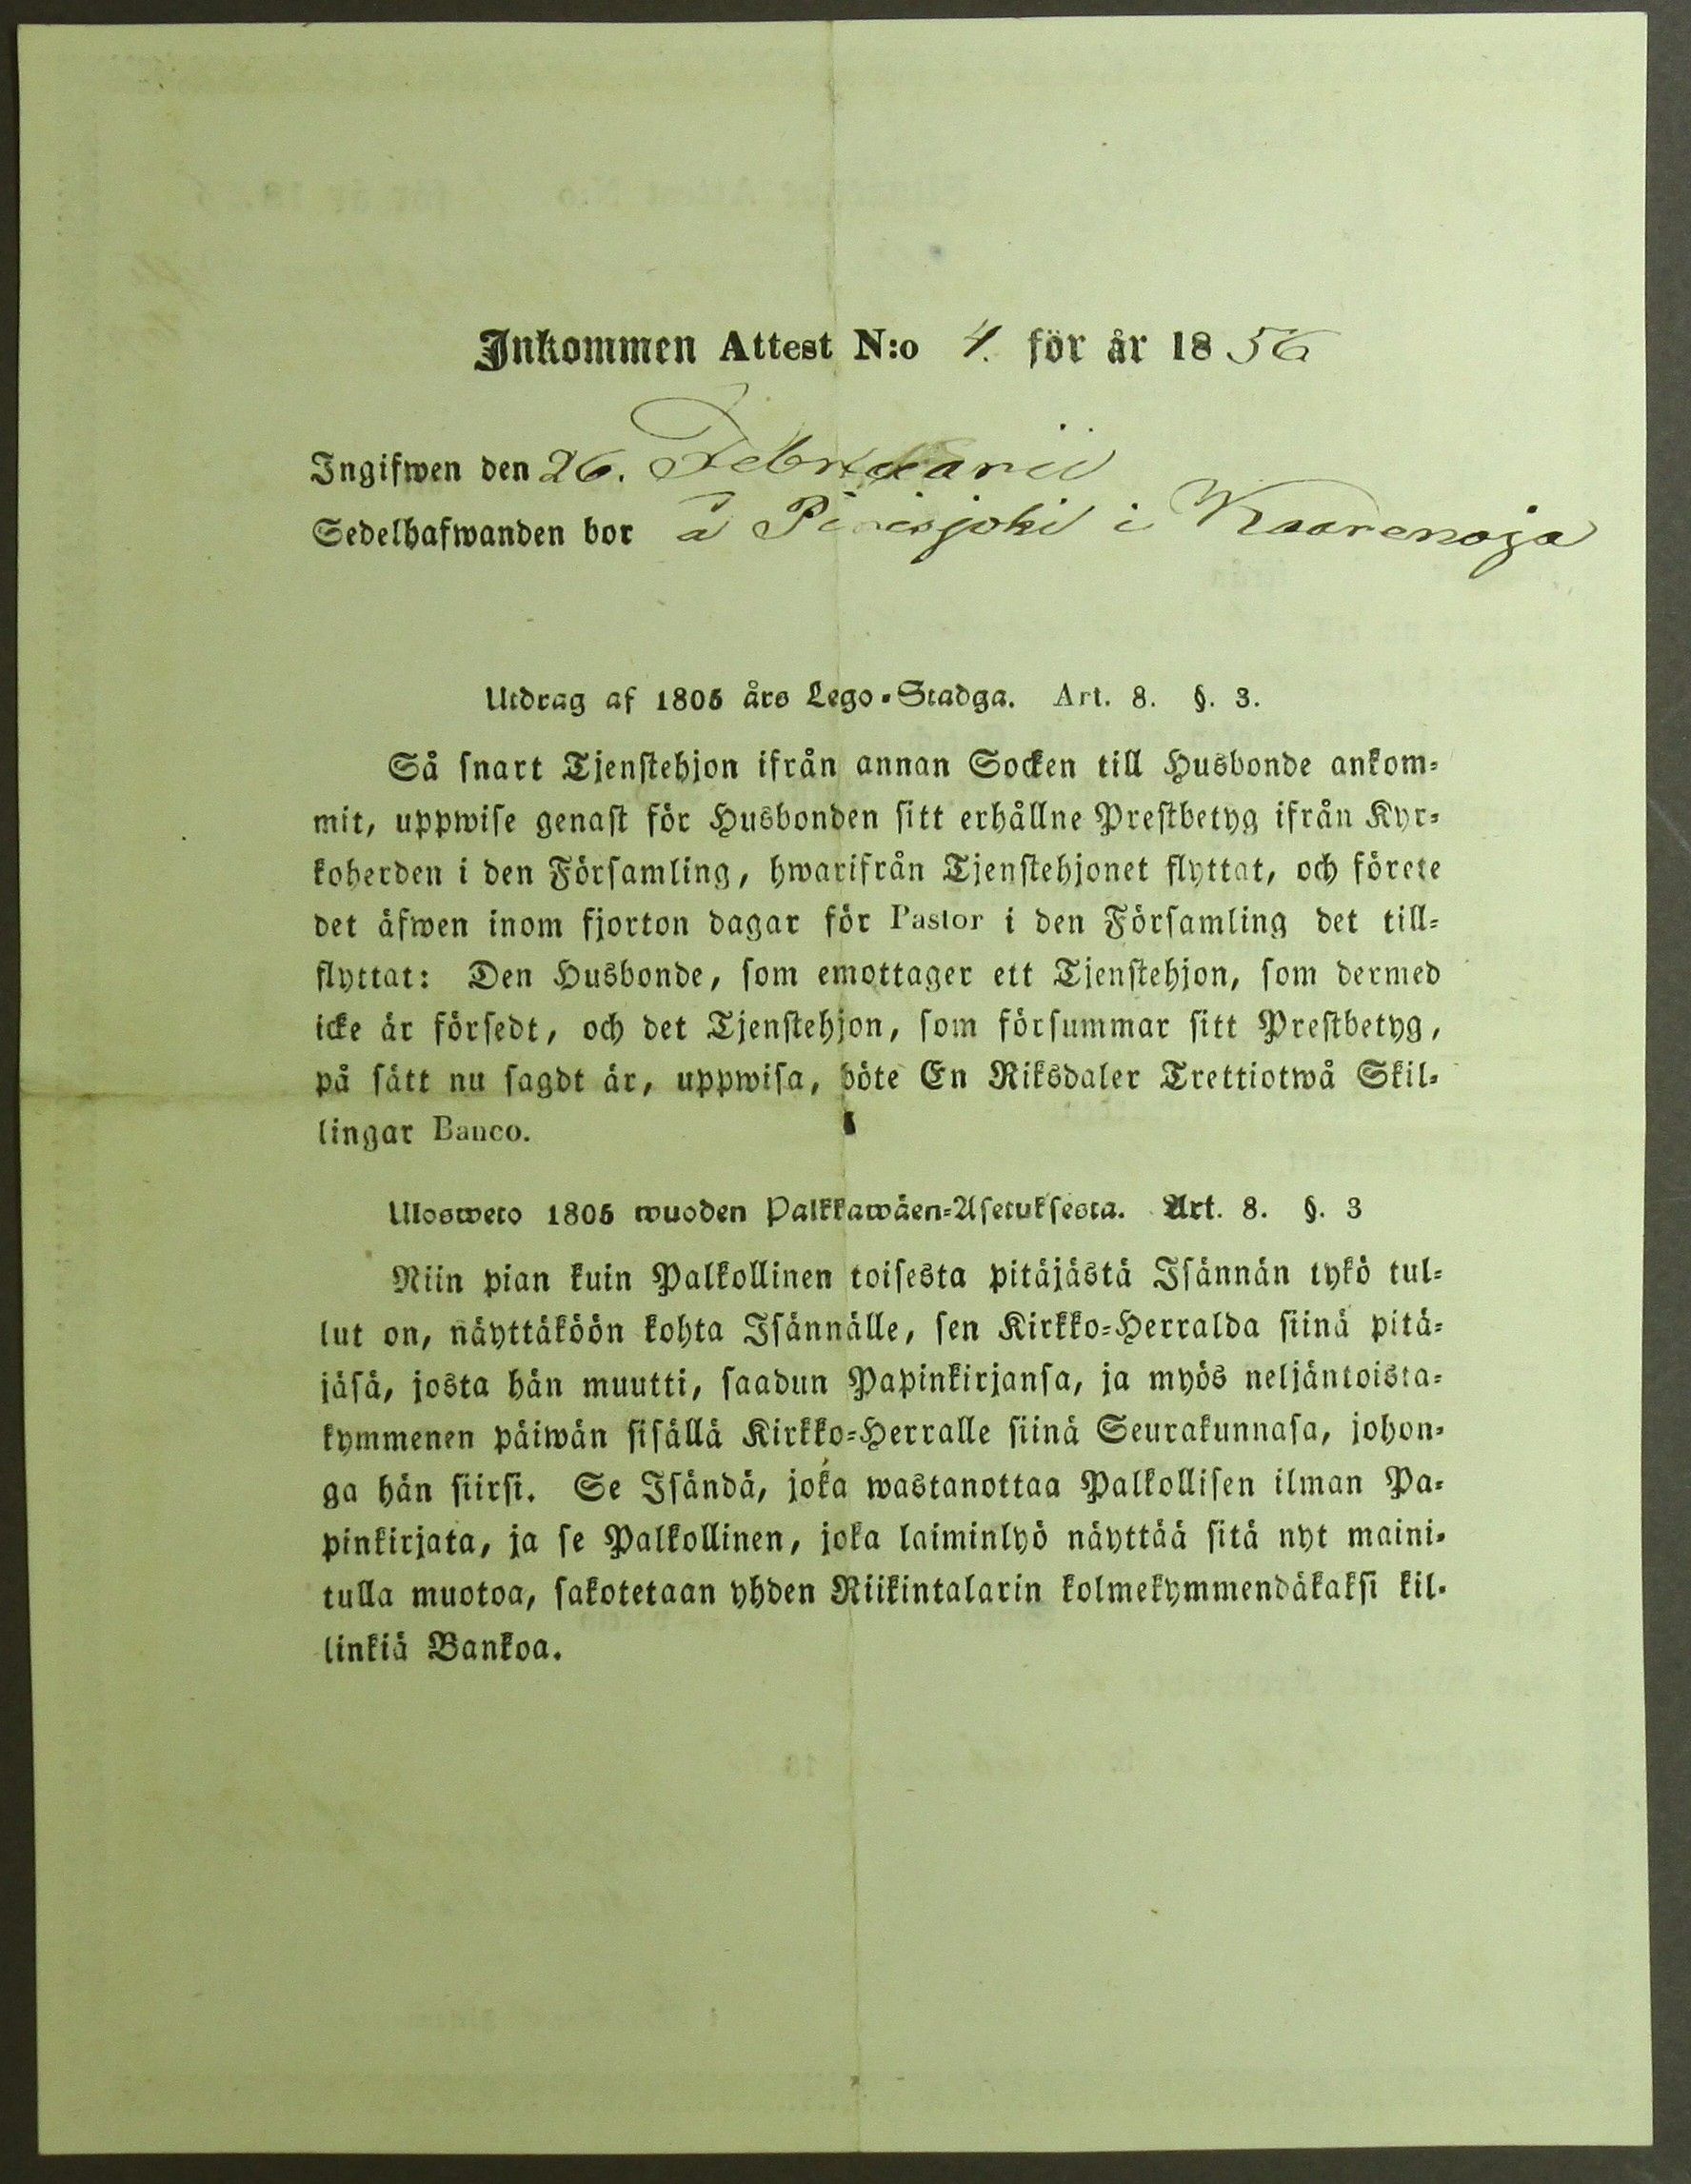 Inkommen Attest N:o 4. för år 1856
Ingifwen den 26. Februarii
Sedelhafwanden bor å i Kaarenoja
Utdrag af 1805 års Lego-Stadga. Art. 8. §. 3.
Så snart Tjenstehjon ifrån annan Socken till Husbonde ankom-
mit, uppwise genast för Husbonden sitt erhållne Prestbetyg ifrån Kyr-
koherden i den Församling, hwarifrån Tjenstehjonet flyttat, och förete
det äfwen inom fjorton dagar för Pastor i den Församling det till-
flyttat: Den Husbonde, som emottager ett Tjenstehjon, som dermed
icke är försedt, och det Tjenstehjon, som försummar sitt Prestbetyg,
på sätt nu sagdt är, uppwisa, böte En Riksdaler Trettiotwå Skil-
lingar Banco.
Ulosweto 1805 wuoden Palkkawäen-Asetuksesta. Art. 8. §. 3
Niin pian kuin Palkollinen toisesta pitäjästä Isännän tykö tul-
lut on, näyttäköön kohta Isännälle, sen Kirkko-Herralda siinä pitä-
jäsä, josta hän muutti, saadun Papinkirjansa, ja myös neljäntoista-
kymmenen päiwän sisällä Kirkko-Herralle siinä Seurakunnasa, johon-
ga hän siirsi. Se Isändä, joka wastanottaa Palkollisen ilman Pa-
pinkirjata, ja se Palkollinen, joka laiminlyö näyttää sitä nyt maini-
tulla muotoa, sakotetaan yhden Riikintalarin kolmekymmendäkaksi kil-
linkiä Bankoa.